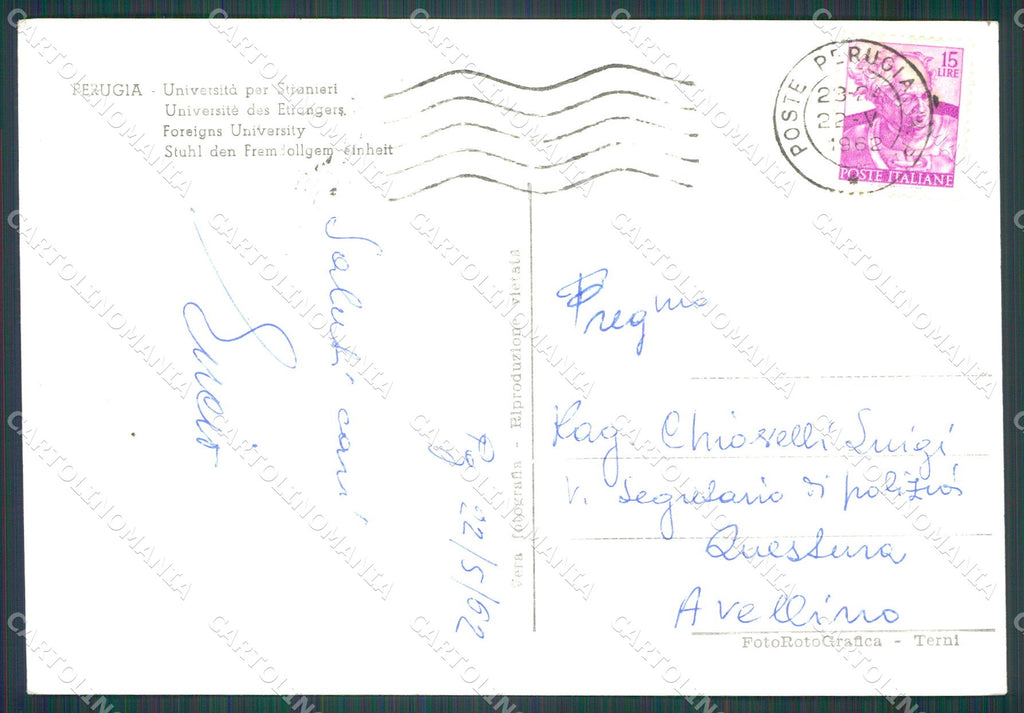 PERUGIA - Università per Stranieri
Université des Etrangers
Foreigns University
Stuhl den Fremdollgemeinheit
POSTE PERUGIA
23-24
22-V
1962
15
LIRE
POSTE ITALIANE
Saluti cari
Pg 22/5/62
Vera fotografia - Riproduzione vietata
Preg mo
Rag. Chioselli Luigi
V. Segretario di polizia
Questura
Avellino
FotoRotoGrafica - Terni
CARTOLINOMANIA